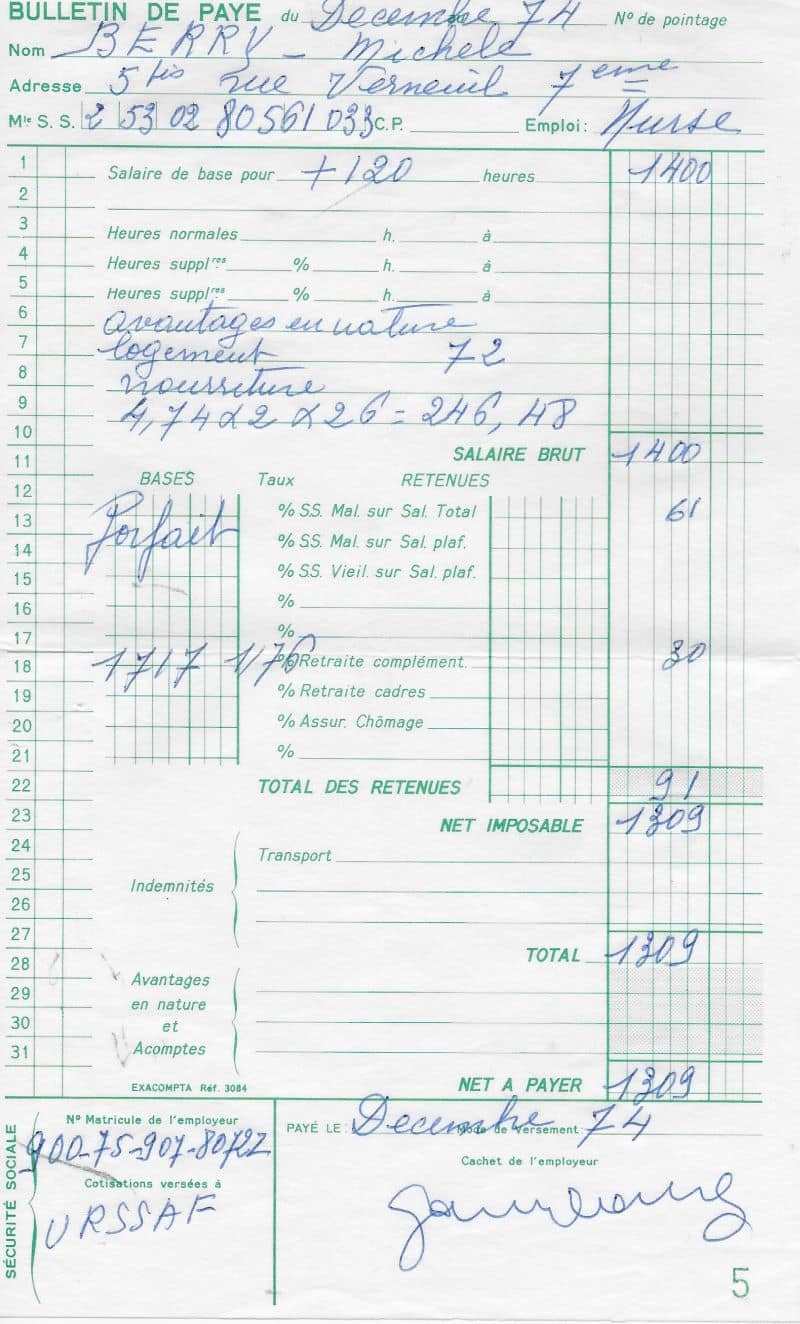 BULLETIN DE PAYE du Decembre 74 N° de pointage
Nom BERRY - Michele
Adresse 5 bis rue Verneuil 7 eme
Mle S. S. 2 53 02 80561 033 C.P. Emploi : Nurse
1 Salaire de base pour +120 heures 1400
2
3 Heures normales h. à
4 Heures supplres % h. à
5 Heures supplres % h. à
6 avantages en nature
7 logement 72
8 nourriture
9 4,74 x 2 x 26 = 246,48
10
11 SALAIRE BRUT 1400
12 BASES Taux RETENUES
13 Forfait % S.S. Mal. sur Sal. Total 61
14 % S.S. Mal. sur Sal. plaf.
15 % S.S. Vieil. sur Sal. plaf.
16 %
17 %
18 1717 1/76 % Retraite complément. 30
19 % Retraite cadres
20 % Assur. Chômage
21 %
22 TOTAL DES RETENUES 91
23 NET IMPOSABLE 1309
24 Transport
25 Indemnités
26
27
28 TOTAL 1309
29 Avantages
en nature
30 et
31 Acomptes
EXACOMPTA Réf. 3084 NET A PAYER 1309
SÉCURITÉ SOCIALE
N° Matricule de l'employeur
900-75-907-80727
Cotisations versées à
URSSAF
PAYÉ LE : Decembre 74 Mode de versement :
Cachet de l'employeur
5